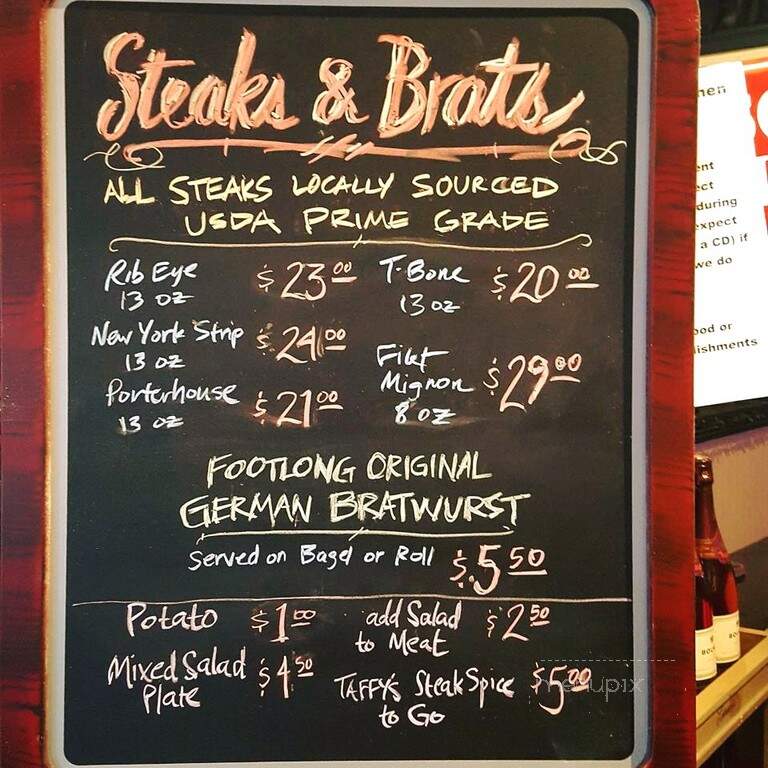 Steaks & Brats
ALL STEAKS LOCALLY SOURCED
USDA PRIME GRADE
Rib Eye $23.00
13 oz
T-Bone $20.00
13 oz
New York Strip $24.00
13 oz
Filet
Mignon $29.00
8 oz
Porterhouse $21.00
13 oz
FOOTLONG ORIGINAL
GERMAN BRATWURST
Served on Bagel or Roll $5.50
Potato $1.00
add Salad $2.50
to Meat
Mixed Salad $4.50
Plate
TAFFY'S Steak Spice $5.00
to Go
menupix
during
expect
a CD) if
we do